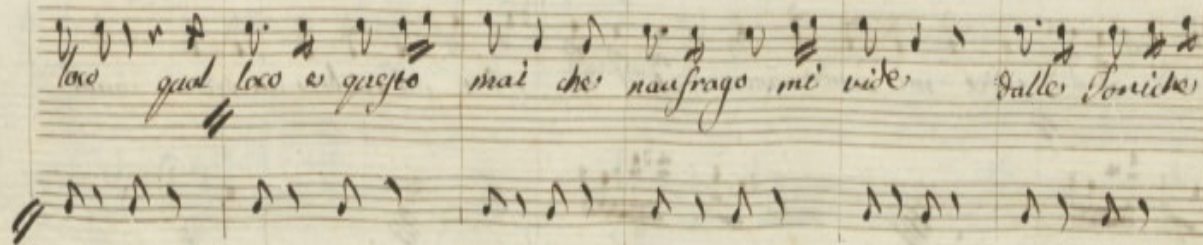 loco qual loco e questo mai che naufrago mi vide dalle Joniche